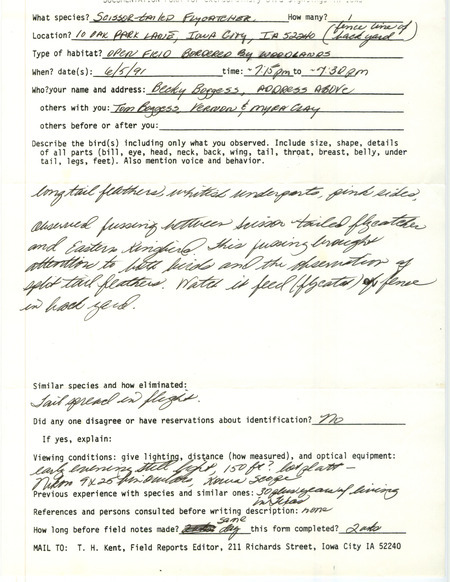 What species? Scissor-tailed Flycatcher. How many?
Location? 10 Oak Park Lane, Iowa City, IA 52240 (fence line of back yard)
Type of habitat? open field bordered by woodlands
When? date(s): 6/5/91 time: ~7:15 pm to ~7:30 pm
Who? your name and address: Becky Boggess, address above
others with you: Tom Boggess, Vernon & Myra Clay
others before or after you:
Describe the bird(s) including only what you observed. Include size, shape, details
of all parts (bill, eye, head, neck, back, wing, tail, throat, breast, belly, under
tail, legs, feet). Also mention voice and behavior.
long tail feathers, whitish underparts, pink sides.
Observed fussing between scissor-tailed flycatcher
and Eastern Kingbird this fussing brought
attention to both birds and the observation of
split tail feathers. Watched it feed (flycatch) off fence
in back yard.
Similar species and how eliminated:
Tail spread in flight.
Did any one disagree or have reservations about identification? No
If yes, explain:
Viewing conditions: give lighting, distance (how measured), and optical equipment:
early evening still light, 150 ft?
Nikon 9x25 binoculars, scope
Previous experience with species and similar ones: 30 plus years of living
in Texas
References and persons consulted before writing description: none
How long before field notes made? same day this form completed? 2 wks
MAIL TO: T. H. Kent, Field Reports Editor, 211 Richards Street, Iowa City IA 52240